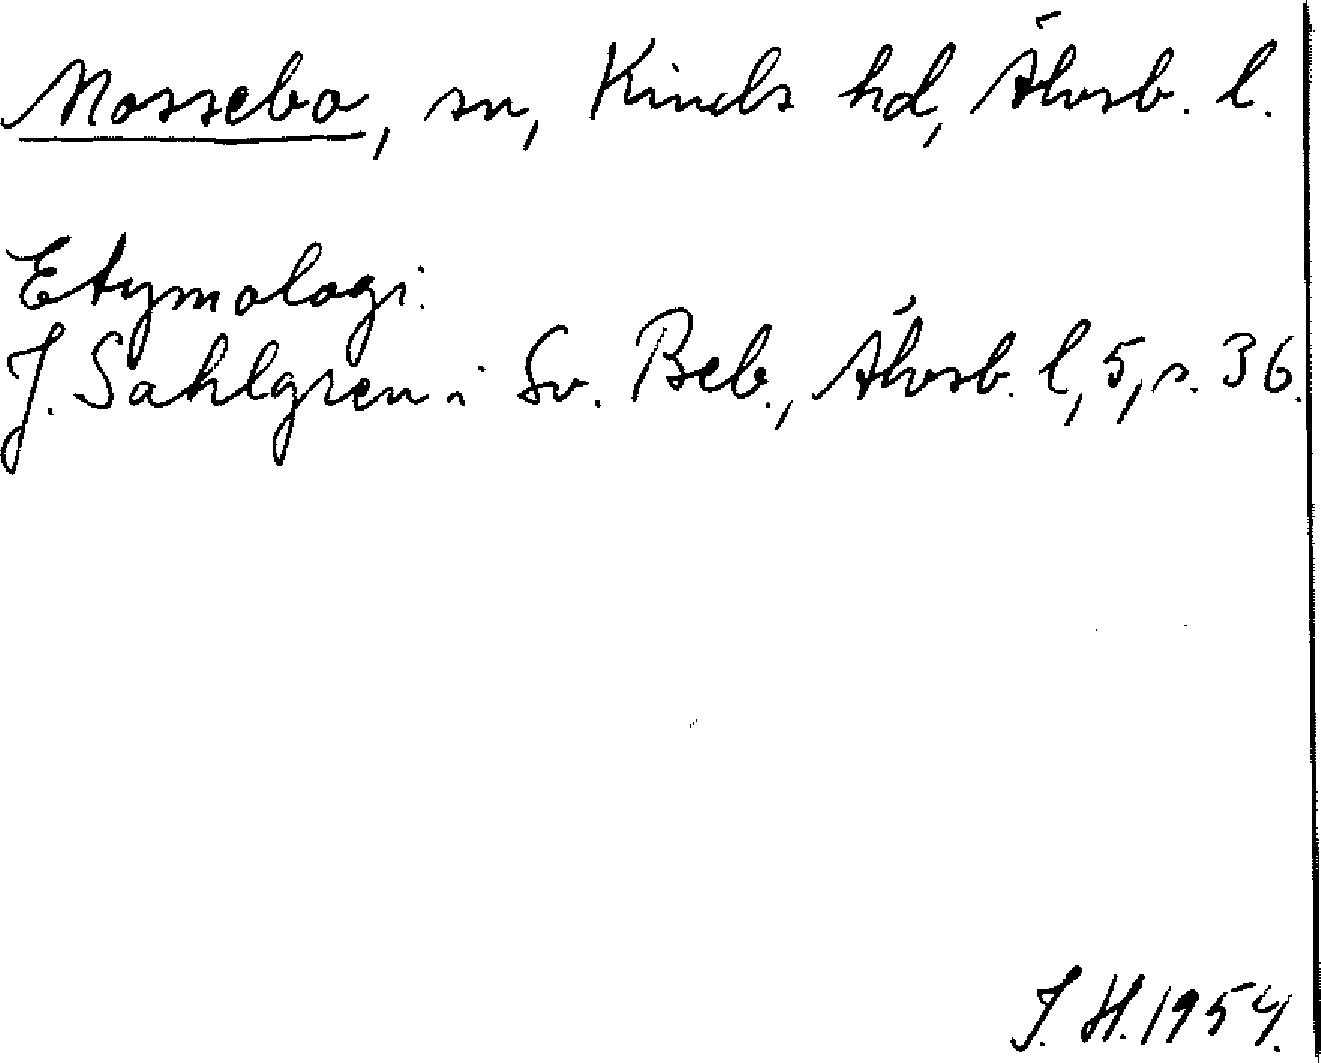 Mossebo, sn, Kinds hd, Älvsb. l.
Etymologi.
J. Sahlgren i Sv. Beb., Älvsb. l, 5, s. 36.
J. H. 1954.